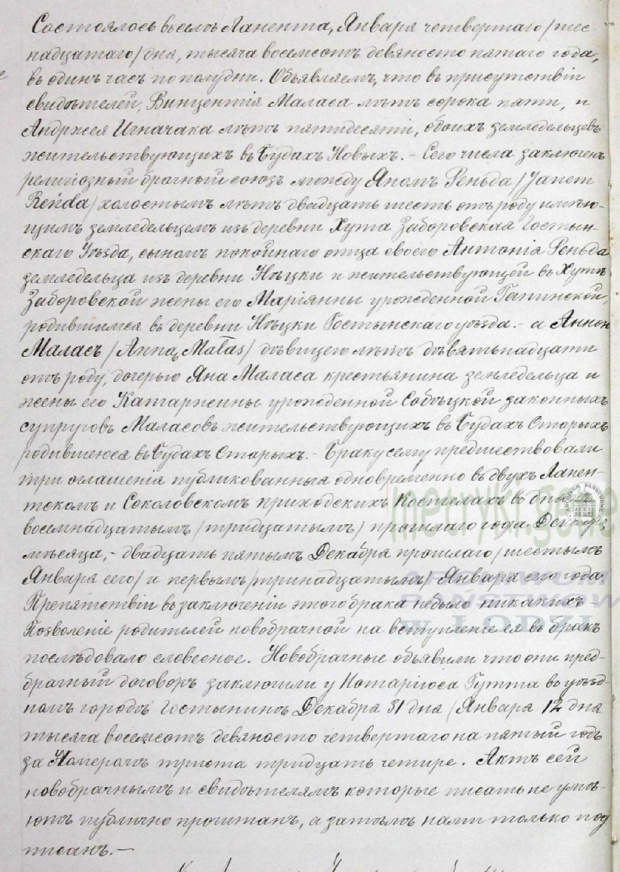 Состоялось въ селѣ Ланента, Января четвертаго /шес-
надцатаго/ дня, тысяча восемсотъ девяносто пятаго года,
въ одинъ часъ по полудни. Объявляемъ, что въ присутствіи
свидѣтелей, Винцентія Маласа лѣтъ сорока пяти, и
Андржея Игначака лѣтъ пятидесяти, обоихъ земледельцевъ
жительствующихъ въ Будахъ Новыхъ. - Сего числа заключенъ
религіозный брачный союзъ между Яномъ Реньда /Janem
Renda/ холостымъ лѣтъ двадцать шесть отъ роду имѣю-
щимъ земледельцемъ изъ деревни Хута Заборовская Гостын-
скаго Уѣзда, сыномъ покойнаго отца своего Антонія Реньда
земледельца изъ деревни Нѣцки и жительствующей въ Хутѣ
Заборовской жены его Маріянны урожденной Папинской,
родившимся въ деревни Нѣцки Гостынскаго уѣзда. - а Анною
Маласъ /Anną Małas/ дѣвицею лѣтъ девятьнадцать
отъ роду, дочерью Яна Маласа крестьянина земледельца и
жены его Катаржины урожденной Собѣцкой законныхъ
супруговъ Маласовъ жительствующихъ въ Будахъ Старыхъ
родившеюся въ Будахъ Старыхъ. - Браку сему предшествовали
три оглашенія публикованныя одновременно въ двухъ Ланен-
тскомъ и Соколовскомъ приходскихъ Костелахъ въ дни
восемнадцатымъ /тридцатымъ/ прошлаго года Декабря
мѣсяца, - двадцать пятымъ Декабря прошлаго /шестымъ
Января сего/ и первымъ /тринадцатымъ/ Января сего года
Препятствіи въ заключеніи этого брака небыло никакихъ
Позволеніе родителей новобрачной на вступленіе ея въ бракъ
послѣдовало словесное. Новобрачные объявили что они пред-
брачный договоръ заключили у Нотаріюса Гутта въ уѣзд-
номъ городѣ Гостынинѣ Декабря 31 дня /Января 12 дня
тысяча восемсотъ девяносто четвертаго на пятый годъ
за Номеромъ триста тридцать четире. Актъ сей
новобрачнымъ и свидѣтелямъ которые писать не умѣ-
ютъ публично прочитанъ, а затѣмъ нами только под
писанъ. -